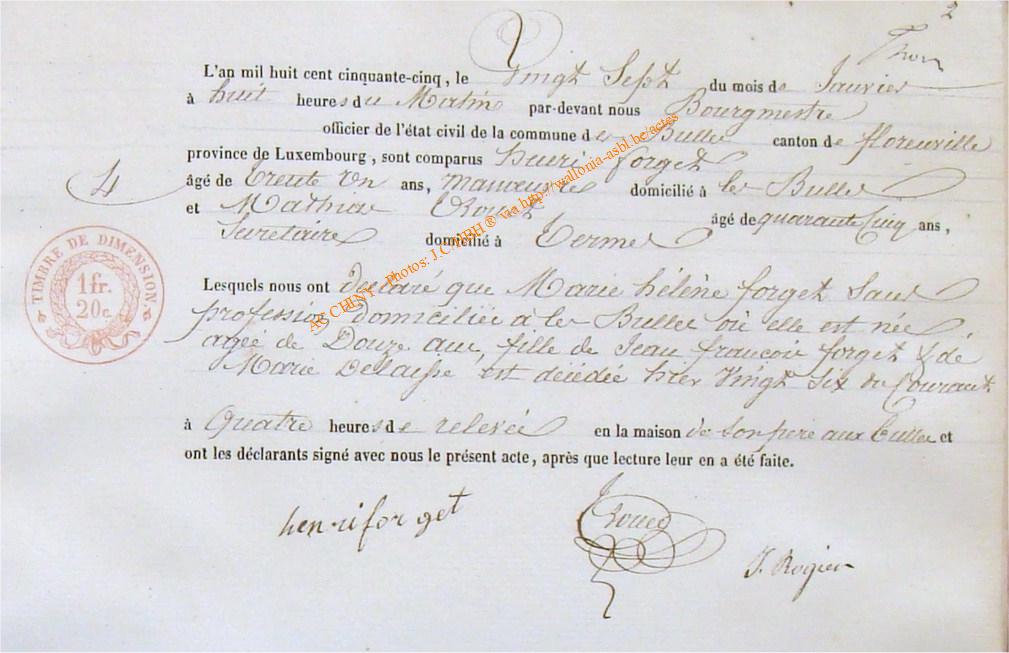 2
L'an mil huit cent cinquante-cinq, le Vingt Sept du mois de Janvier
à huit heures du Matin par-devant nous Bourgmestre
officier de l'état civil de la commune des Bulles canton de florenville
province de Luxembourg, sont comparus henri forget
4
âgé de trente un ans, manoeuvre domicilié à les Bulles
et Mathias Roues âgé de quarante Cinq ans,
Secretaire domicilié à Termes
TIMBRE DE DIMENSION.
1 fr.
20 c.
AC CHINY - Photos: J.C. MBH ® via http://wallonia-asbl.be/actes
Lesquels nous ont déclaré que Marie hélène forget Sans
profession domiciliée à les Bulles où elle est née
agée de Douze ans, fille de Jean françois forget & de
Marie Delaisse est décédée hier Vingt Six du Courant
à Quatre heures de relevée en la maison de son père aux Bulles et
ont les déclarants signé avec nous le présent acte, après que lecture leur en a été faite.
henri forget
Roues
J. Rogier